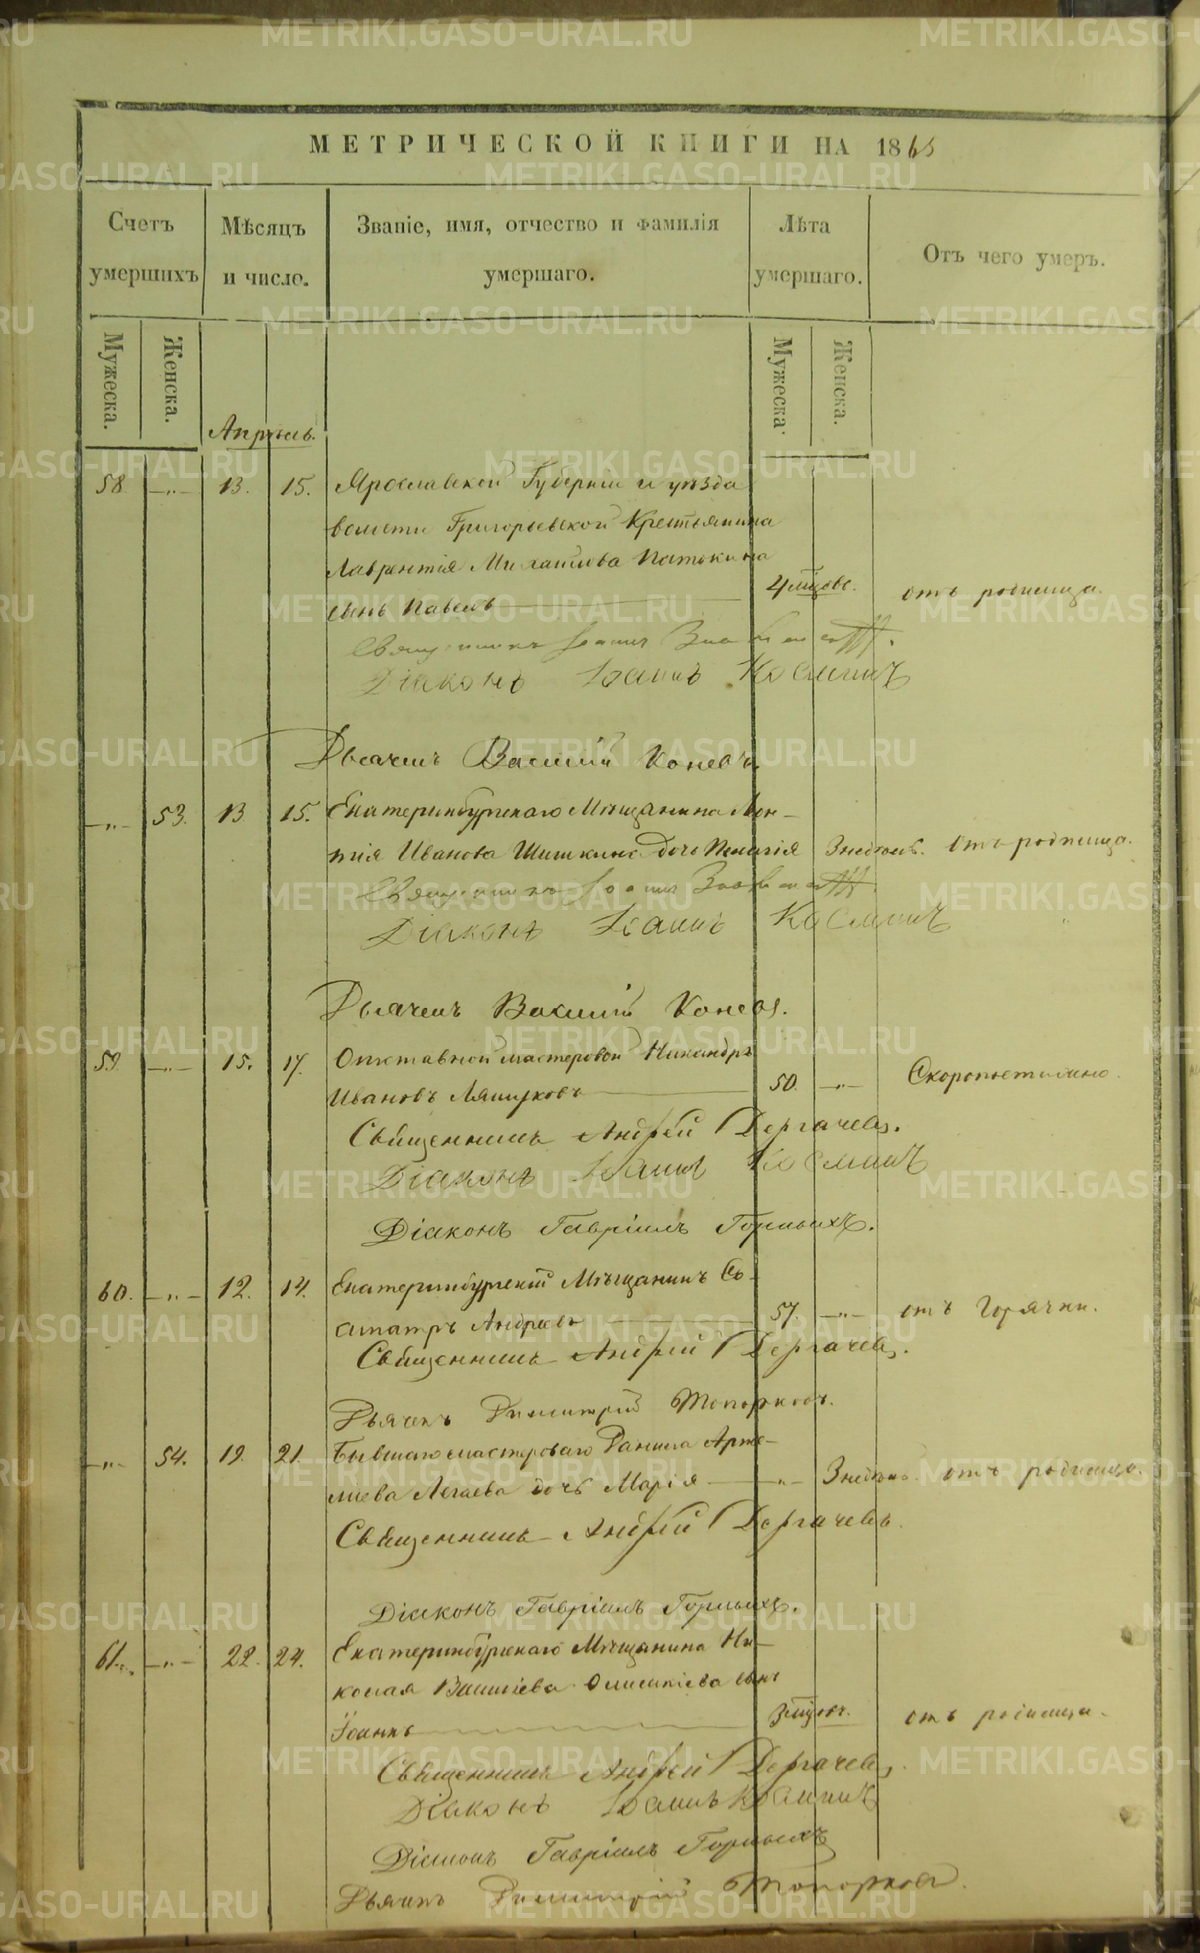 МЕТРИЧЕСКОЙ КНИГИ НА 1865
Счетъ умершихъ
Мѣсяцъ и число.
Званіе, имя, отчество и фамилія умершаго.
Лѣта умершаго.
Отъ чего умеръ.
Мужеска.
Женска.
Мужеска
Женска.
Апрѣль.
58. —"— 13. 15. Ярославской Губерніи и уѣзда
волости Григорьевской Крестьянина
Лаврентія Михайлова
сынъ Павелъ — 4 мѣсяц. отъ родимца.
Священникъ Іоаннъ
Діаконъ Іоаннъ Косминъ
Дьячекъ Василій Коневъ.
—"— 53. 13 15. Екатеринбургскаго Мѣщанина Лен-
тія Иванова Шишкина дочь Пелагія 3 недѣль. отъ родимца.
Священникъ Іоаннъ
Діаконъ Іоаннъ Косминъ
Дьячекъ Василій Коневъ.
59. —"— 15. 17. Отставной мастеровой Никандръ
Ивановъ — 50. —"— Скоропостижно.
Священникъ Андрей Дергачевъ.
Діаконъ Іоаннъ Косминъ
Діаконъ Гавріилъ Горныхъ.
60. —"— 12. 14. Екатеринбургскій Мѣщанинъ Со-
сипатръ Андреевъ — 57. —"— отъ Горячки.
Священникъ Андрей Дергачевъ.
Дьячекъ Димитрій Топорковъ.
—"— 54. 19. 21. Бывшаго мастероваго Данила Арте-
міева дочь Марія —"— 3 недѣль. отъ родимца.
Священникъ Андрей Дергачевъ.
Діаконъ Гавріилъ Горныхъ.
61. —"— 22. 24. Екатеринбургскаго Мѣщанина Ни-
колая сынъ
Іоаннъ — 3 мѣсяц. отъ родимца.
Священникъ Андрей Дергачевъ.
Діаконъ Іоаннъ Косминъ
Діаконъ Гавріилъ Горныхъ
Дьячекъ Димитрій Топорковъ.
METRIKI.GASO-URAL.RU